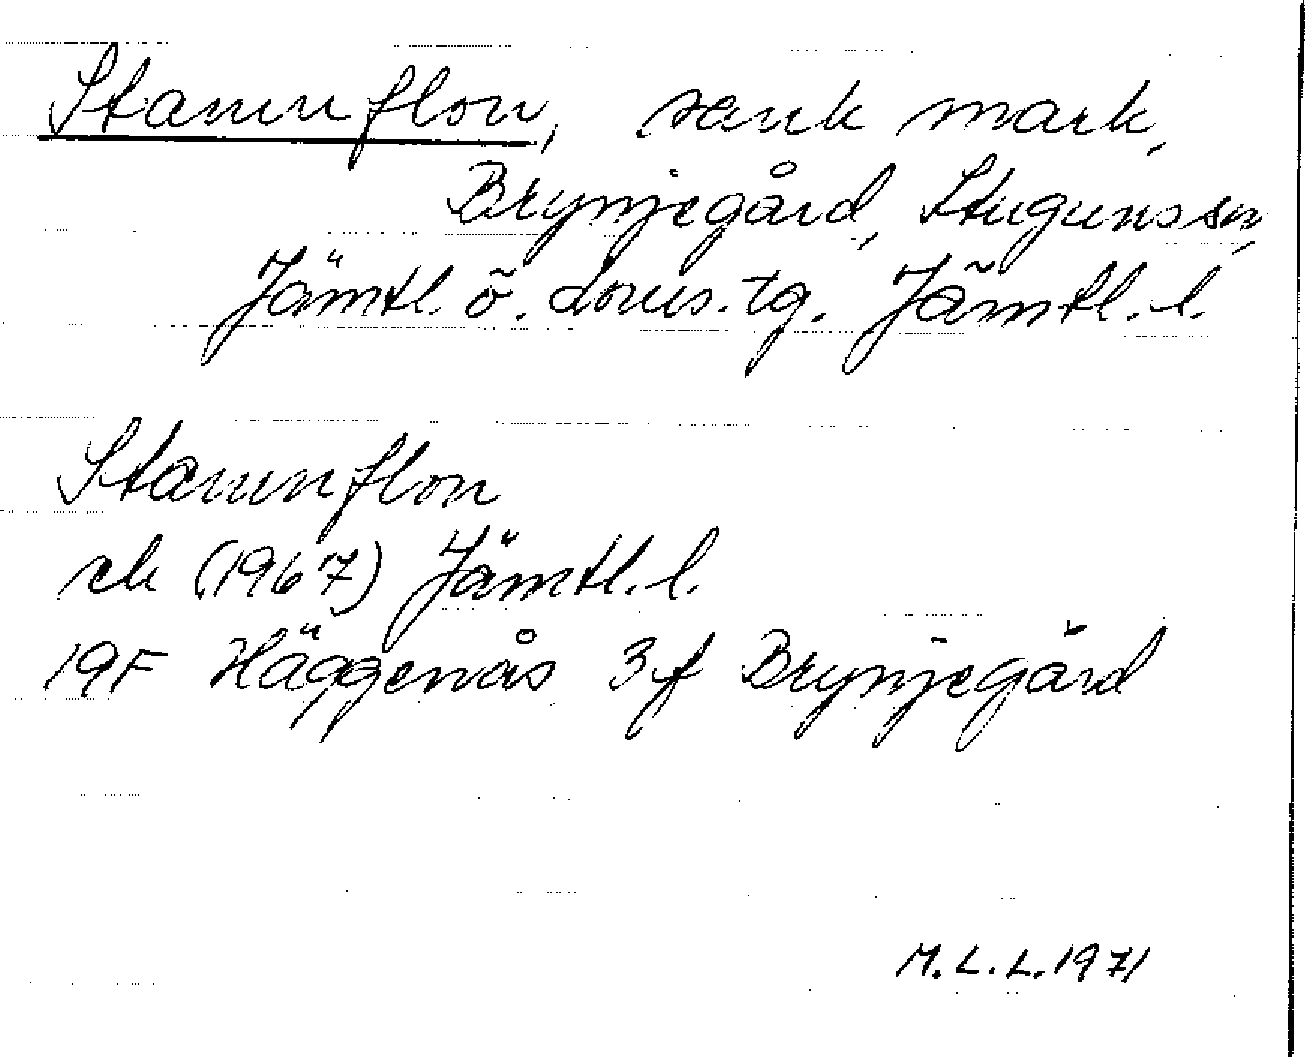 Stamnflon, sank mark,
Brynjegård, Stuguns sn,
Jämtl. ö. doms. tg. Jämtl. l.
Stamnflon
ek (1967) Jämtl. l.
19F Häggenås 3f Brynjegård
M.L.L. 1971